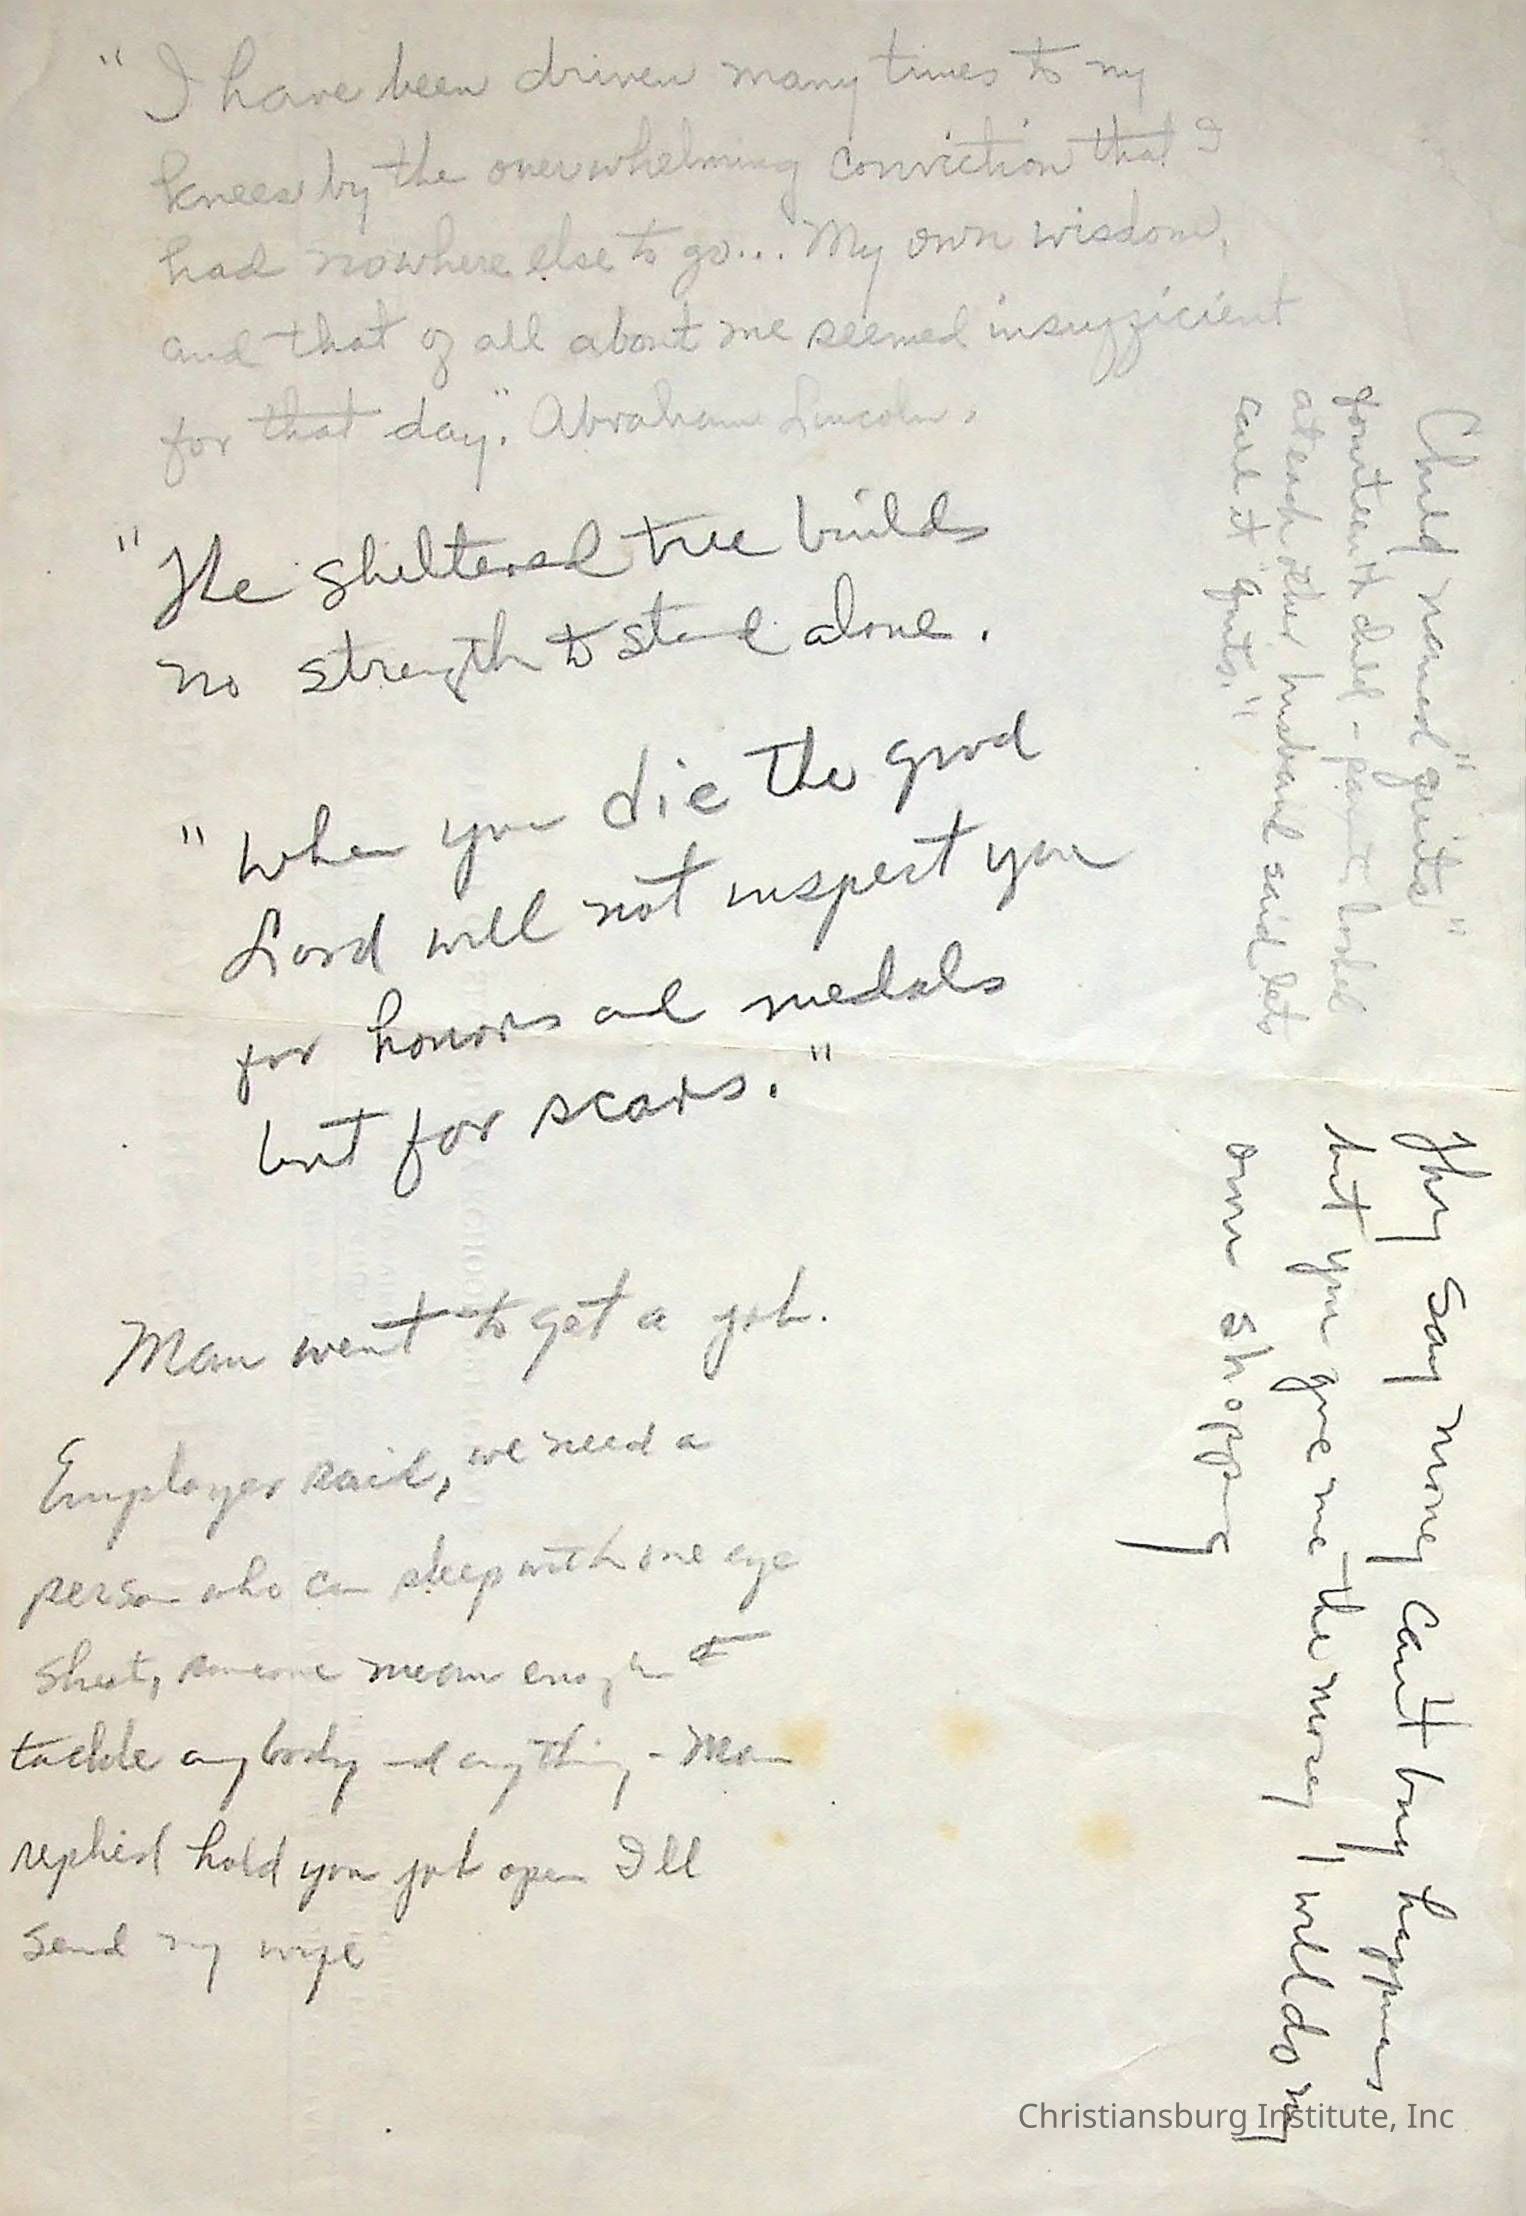 " I have been driven many times to my
knees by the overwhelming conviction that I
had nowhere else to go... My own wisdom,
and that of all about me seemed insufficient
for that day." Abraham Lincoln.
" The sheltered tree builds
no strength to stand alone.
" When you die the good
Lord will not inspect you
for honors and medals
but for scars."
Man went to get a job.
Employer said, we need a
person who can sleep with one eye
shut, someone mean enough to
tackle anybody and anything - Man
replied hold your job open I'll
send my wife
Child named "quits"
fourteenth child - looked
at each other husband said lets
call it "quits."
They say money can't buy happiness
but you give me the money I will do my
own shopping
Christiansburg Institute, Inc